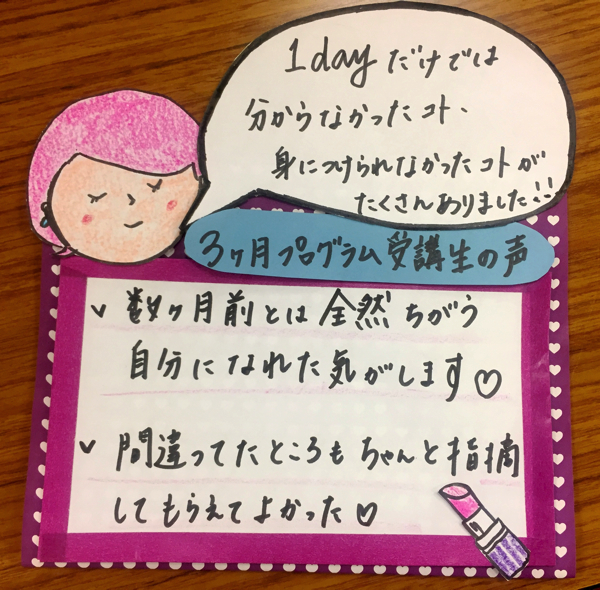 1dayだけでは
分からなかったコト、
身につけられなかったコトが
たくさんありました!!
3ヶ月プログラム受講生の声
✓ 数ヶ月前とは全然ちがう
自分になれた気がします♡
✓ 間違ってたところもちゃんと指摘
してもらえてよかった♡